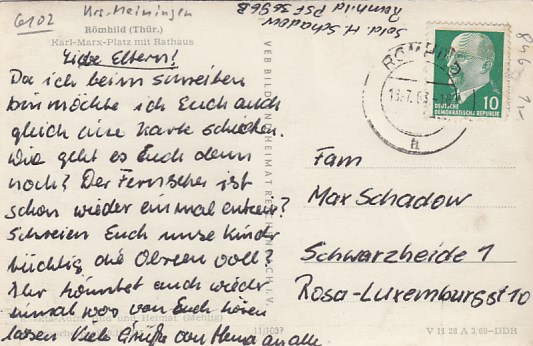 6102 Krs. Meiningen
Römhild (Thür.)
Karl-Marx-Platz mit Rathaus
Liebe Eltern!
Da ich beim schreiben
bin möchte ich Euch auch
gleich eine Karte schicken.
Wie geht es Euch denn
noch? Der Fernseher ist
schon wieder einmal entzwei?
Schreien Euch unse Kinder
tüchtig die Ohren voll?
Ihr könntet auch wieder
einmal was von Euch hören
lassen Viele Grüße von Mena an alle
VEB BILD UND HEIMAT REICHENBACH I. V.
11/1037
Sold. H. Schadow
Römhild PSF 3696B
846 1,-
RÖMHILD
h
10
DEUTSCHE
DEMOKRATISCHE REPUBLIK
Fam
Max Schadow
Schwarzheide 1
Rosa-Luxemburgst 10
V 11 28 A 3/69-DDH